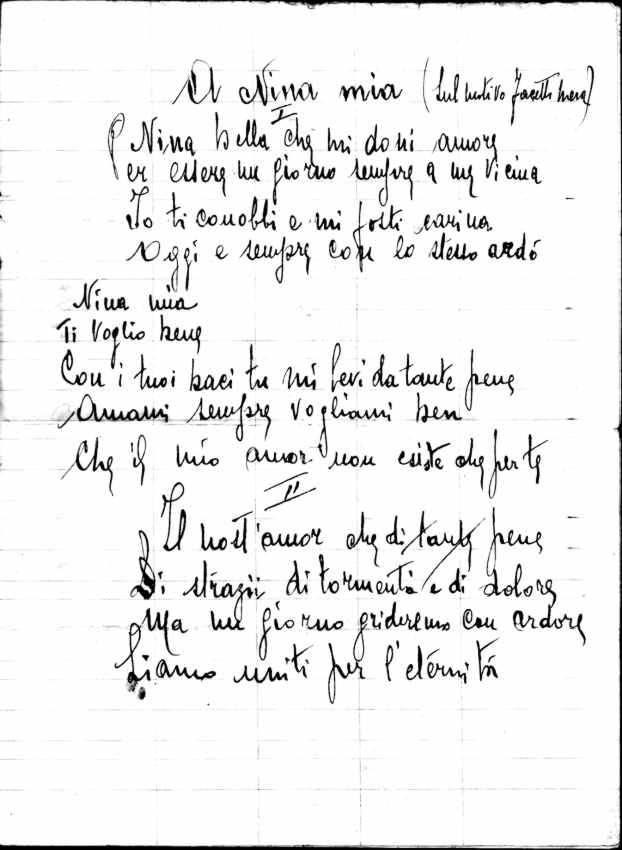 A Nina mia (Sul motivo Faccetta Nera)
I
Nina bella che mi doni amore
Per essere un giorno sempre a me vicina
Io ti conobbi e mi fosti carina
Oggi e sempre con lo stesso ardó
Nina mia
Ti voglio bene
Con i tuoi baci tu mi levi da tante pene
Amami sempre vogliami ben
Che il mio amor non esiste che per te
II
Il nost'amor che di tante pene
Di strazii di tormenta e di dolore
Ma un giorno grideremo con ardore
Siamo uniti per l'eternitá